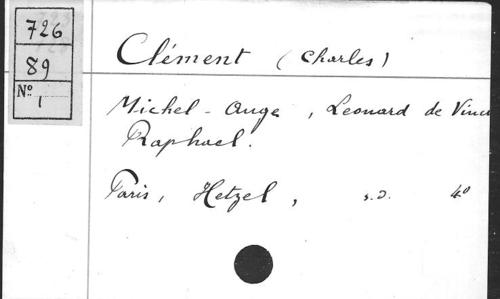 726
89
No 1
Clément (Charles)
Michel-Ange, Leonard de Vinci
Raphael.
Paris, Hetzel, s.d. 4o